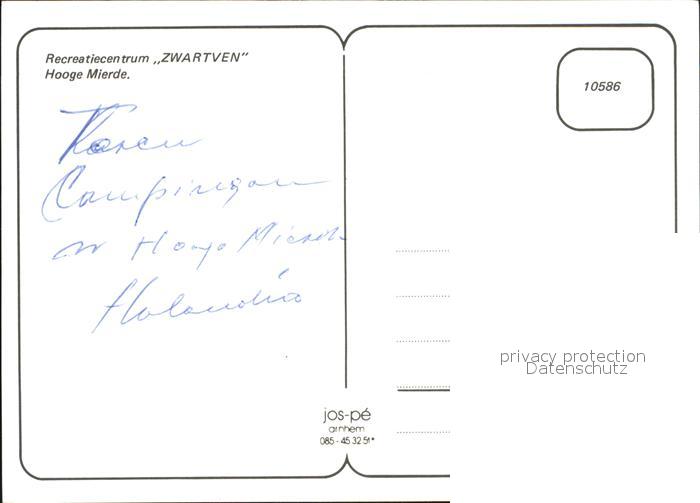 Recreatiecentrum „ZWARTVEN”
Hooge Mierde.
10586
Karen
Campingau
w Hooge Mierde
Holandia
privacy protection
Datenschutz
jos-pé
arnhem
085-45 32 51*